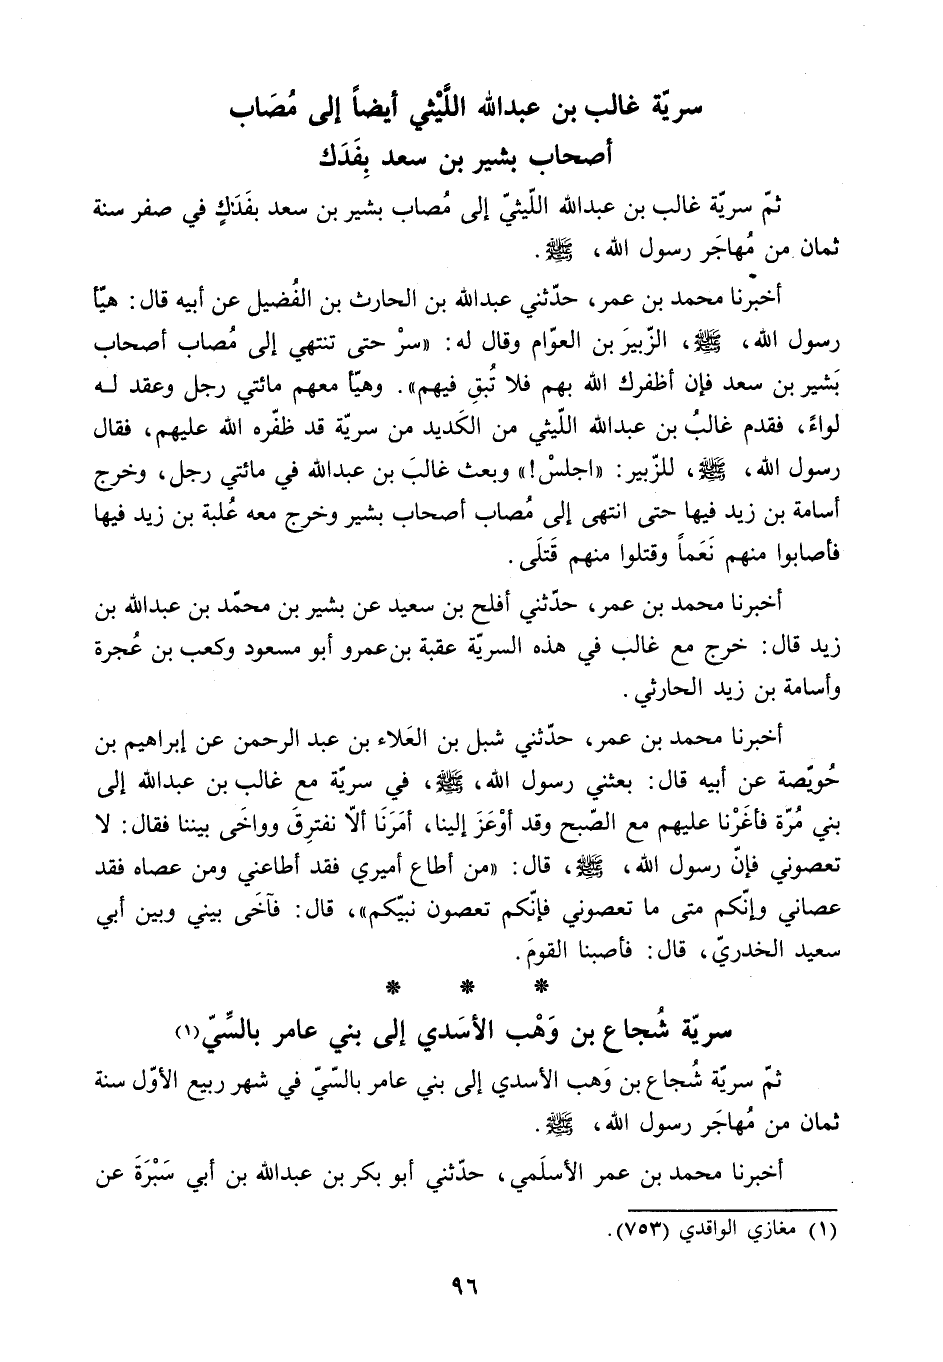 سريّة غالب بن عبدالله اللَّيْثي أيضاً إلى مُصَاب
أصحاب بشير بن سعد بِفَدَك
ثمّ سريّة غالب بن عبدالله اللّيثيّ إلى مُصاب بشير بن سعد بفَدَكٍ في صفر سنة
ثمان من مُهاجَر رسول الله، ﷺ.
أخبرنا محمد بن عمر، حدّثني عبدالله بن الحارث بن الفُضيل عن أبيه قال: هيّأ
رسول الله، ﷺ، الزّبيرَ بن العوّام وقال له: «سرْ حتى تنتهي إلى مُصاب أصحاب
بَشير بن سعد فإن أظفرك الله بهم فلا تُبقِ فيهم». وهيّأ معهم مائتي رجل وعقد لـه
لواءً، فقدم غالبُ بن عبدالله اللّيثي من الكَديد من سريّة قد ظفّره الله عليهم، فقال
رسول الله، ﷺ، للزّبير: «اجلسْ!» وبعث غالبَ بن عبدالله في مائتي رجل، وخرج
أسامة بن زيد فيها حتى انتهى إلى مُصاب أصحاب بشير وخرج معه عُلبة بن زيد فيها
فأصابوا منهم نَعَماً وقتلوا منهم قَتلَى.
أخبرنا محمد بن عمر، حدّثني أفلح بن سعيد عن بشير بن محمّد بن عبدالله بن
زيد قال: خرج مع غالب في هذه السريّة عقبة بن عمرو أبو مسعود وكعب بن عُجرة
وأسامة بن زيد الحارثي.
أخبرنا محمد بن عمر، حدّثني شبل بن العَلاء بن عبد الرحمن عن إبراهيم بن
حُويّصة عن أبيه قال: بعثني رسول الله، ﷺ، في سريّة مع غالب بن عبدالله إلى
بني مُرّة فأغَرْنا عليهم مع الصّبح وقد أوْعَزَ إلينا، أمَرَنَا ألاّ نفترِقَ وواخَى بيننا فقال: لا
تعصوني فإنّ رسول الله، ﷺ، قال: «من أطاع أميري فقد أطاعني ومن عصاه فقد
عصاني وإنّكم متى ما تعصوني فإنّكم تعصون نبيّكم»، قال: فآخَى بيني وبين أبي
سعيد الخدريّ، قال: فأصبنا القومَ.
* * *
سريّة شُجاع بن وَهْب الأسَدي إلى بني عامر بالسِّيّ(١)
ثمّ سريّة شُجاع بن وَهب الأسدي إلى بني عامر بالسّيّ في شهر ربيع الأوّل سنة
ثمان من مُهاجَر رسول الله، ﷺ.
أخبرنا محمد بن عمر الأسلَمي، حدّثني أبو بكر بن عبدالله بن أبي سَبْرَةَ عن
(١) مغازي الواقدي (٧٥٣).
٩٦